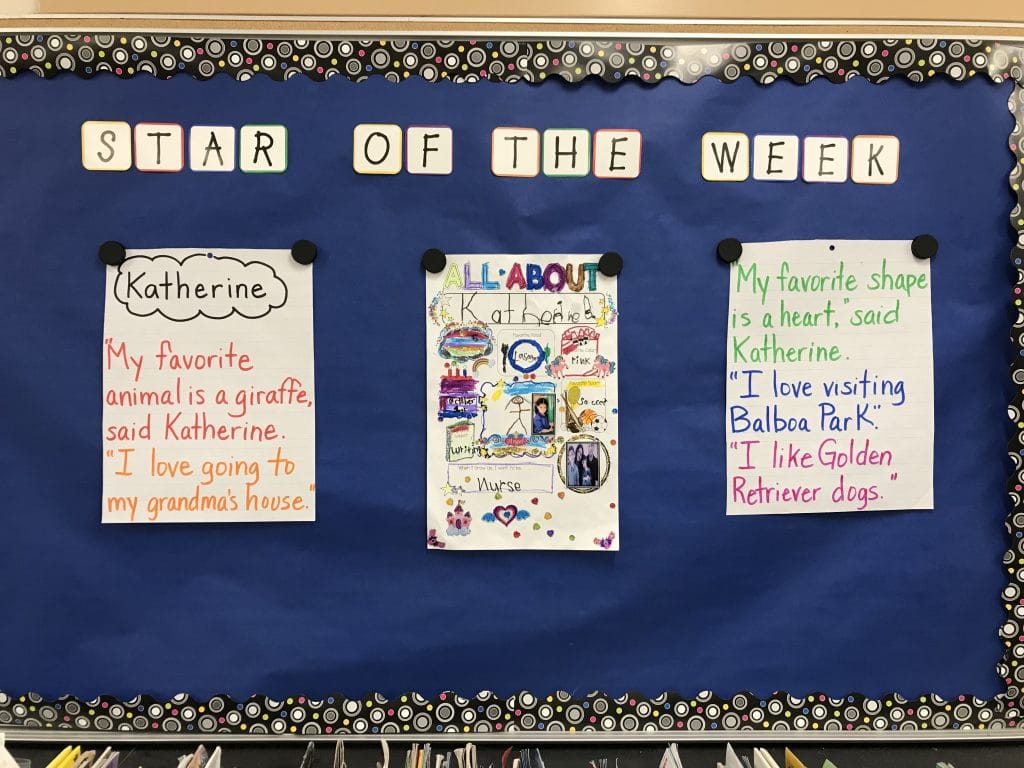 STAR OF THE WEEK
Katherine
"My favorite
animal is a giraffe,
said Katherine.
"I love going to
my grandma's house."
ALL ABOUT
Katherine
Favorite Food
Pink
Favorite Sport
Soccer
Writing
When I grow up, I want to be
Nurse
"My favorite shape
is a heart," said
Katherine.
"I love visiting
Balboa Park".
"I like Golden
Retriever dogs."